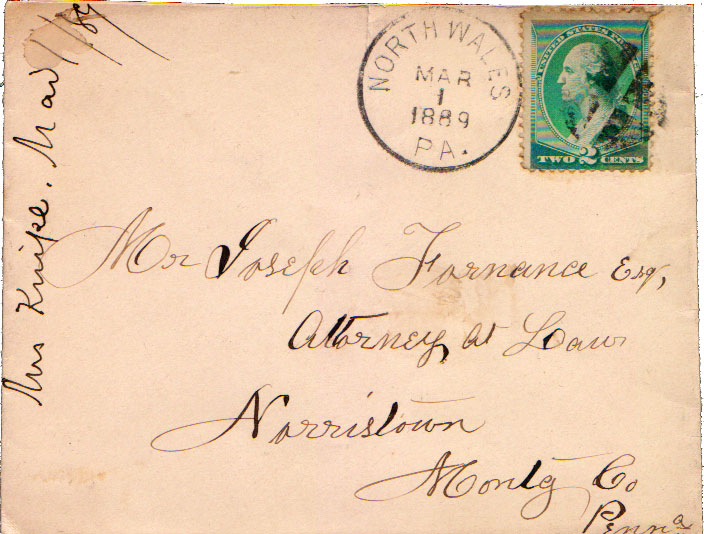 NORTH WALES
MAR
1
1889
PA.
UNITED STATES POSTAGE
TWO 2 CENTS
Mr Joseph Fornance Esq,
Attorney at Law
Norristown
Montg Co
Penna
Mrs Knipe. Mar 1/89